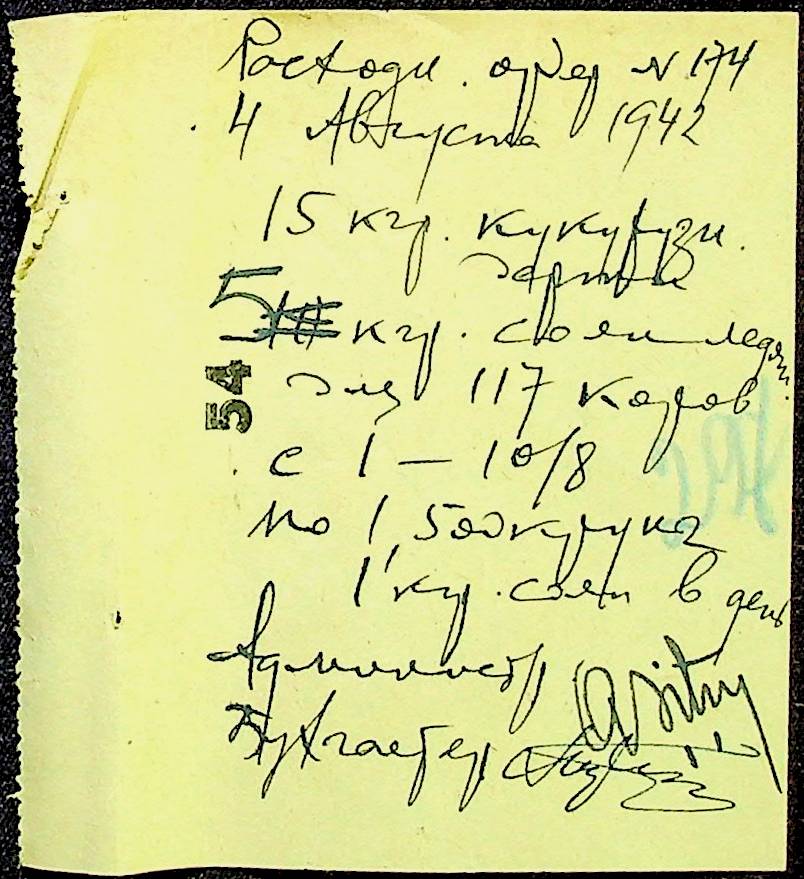 Расходн. ордер N 174
4 Августа 1942
15 кгр. кукурузн.
дерти
5 кгр. соли ледян.
для 117 коров
54
с 1 — 10/8
по 1,500 кукуруз
1 кгр. соли в день
Администр
Бухгалтер